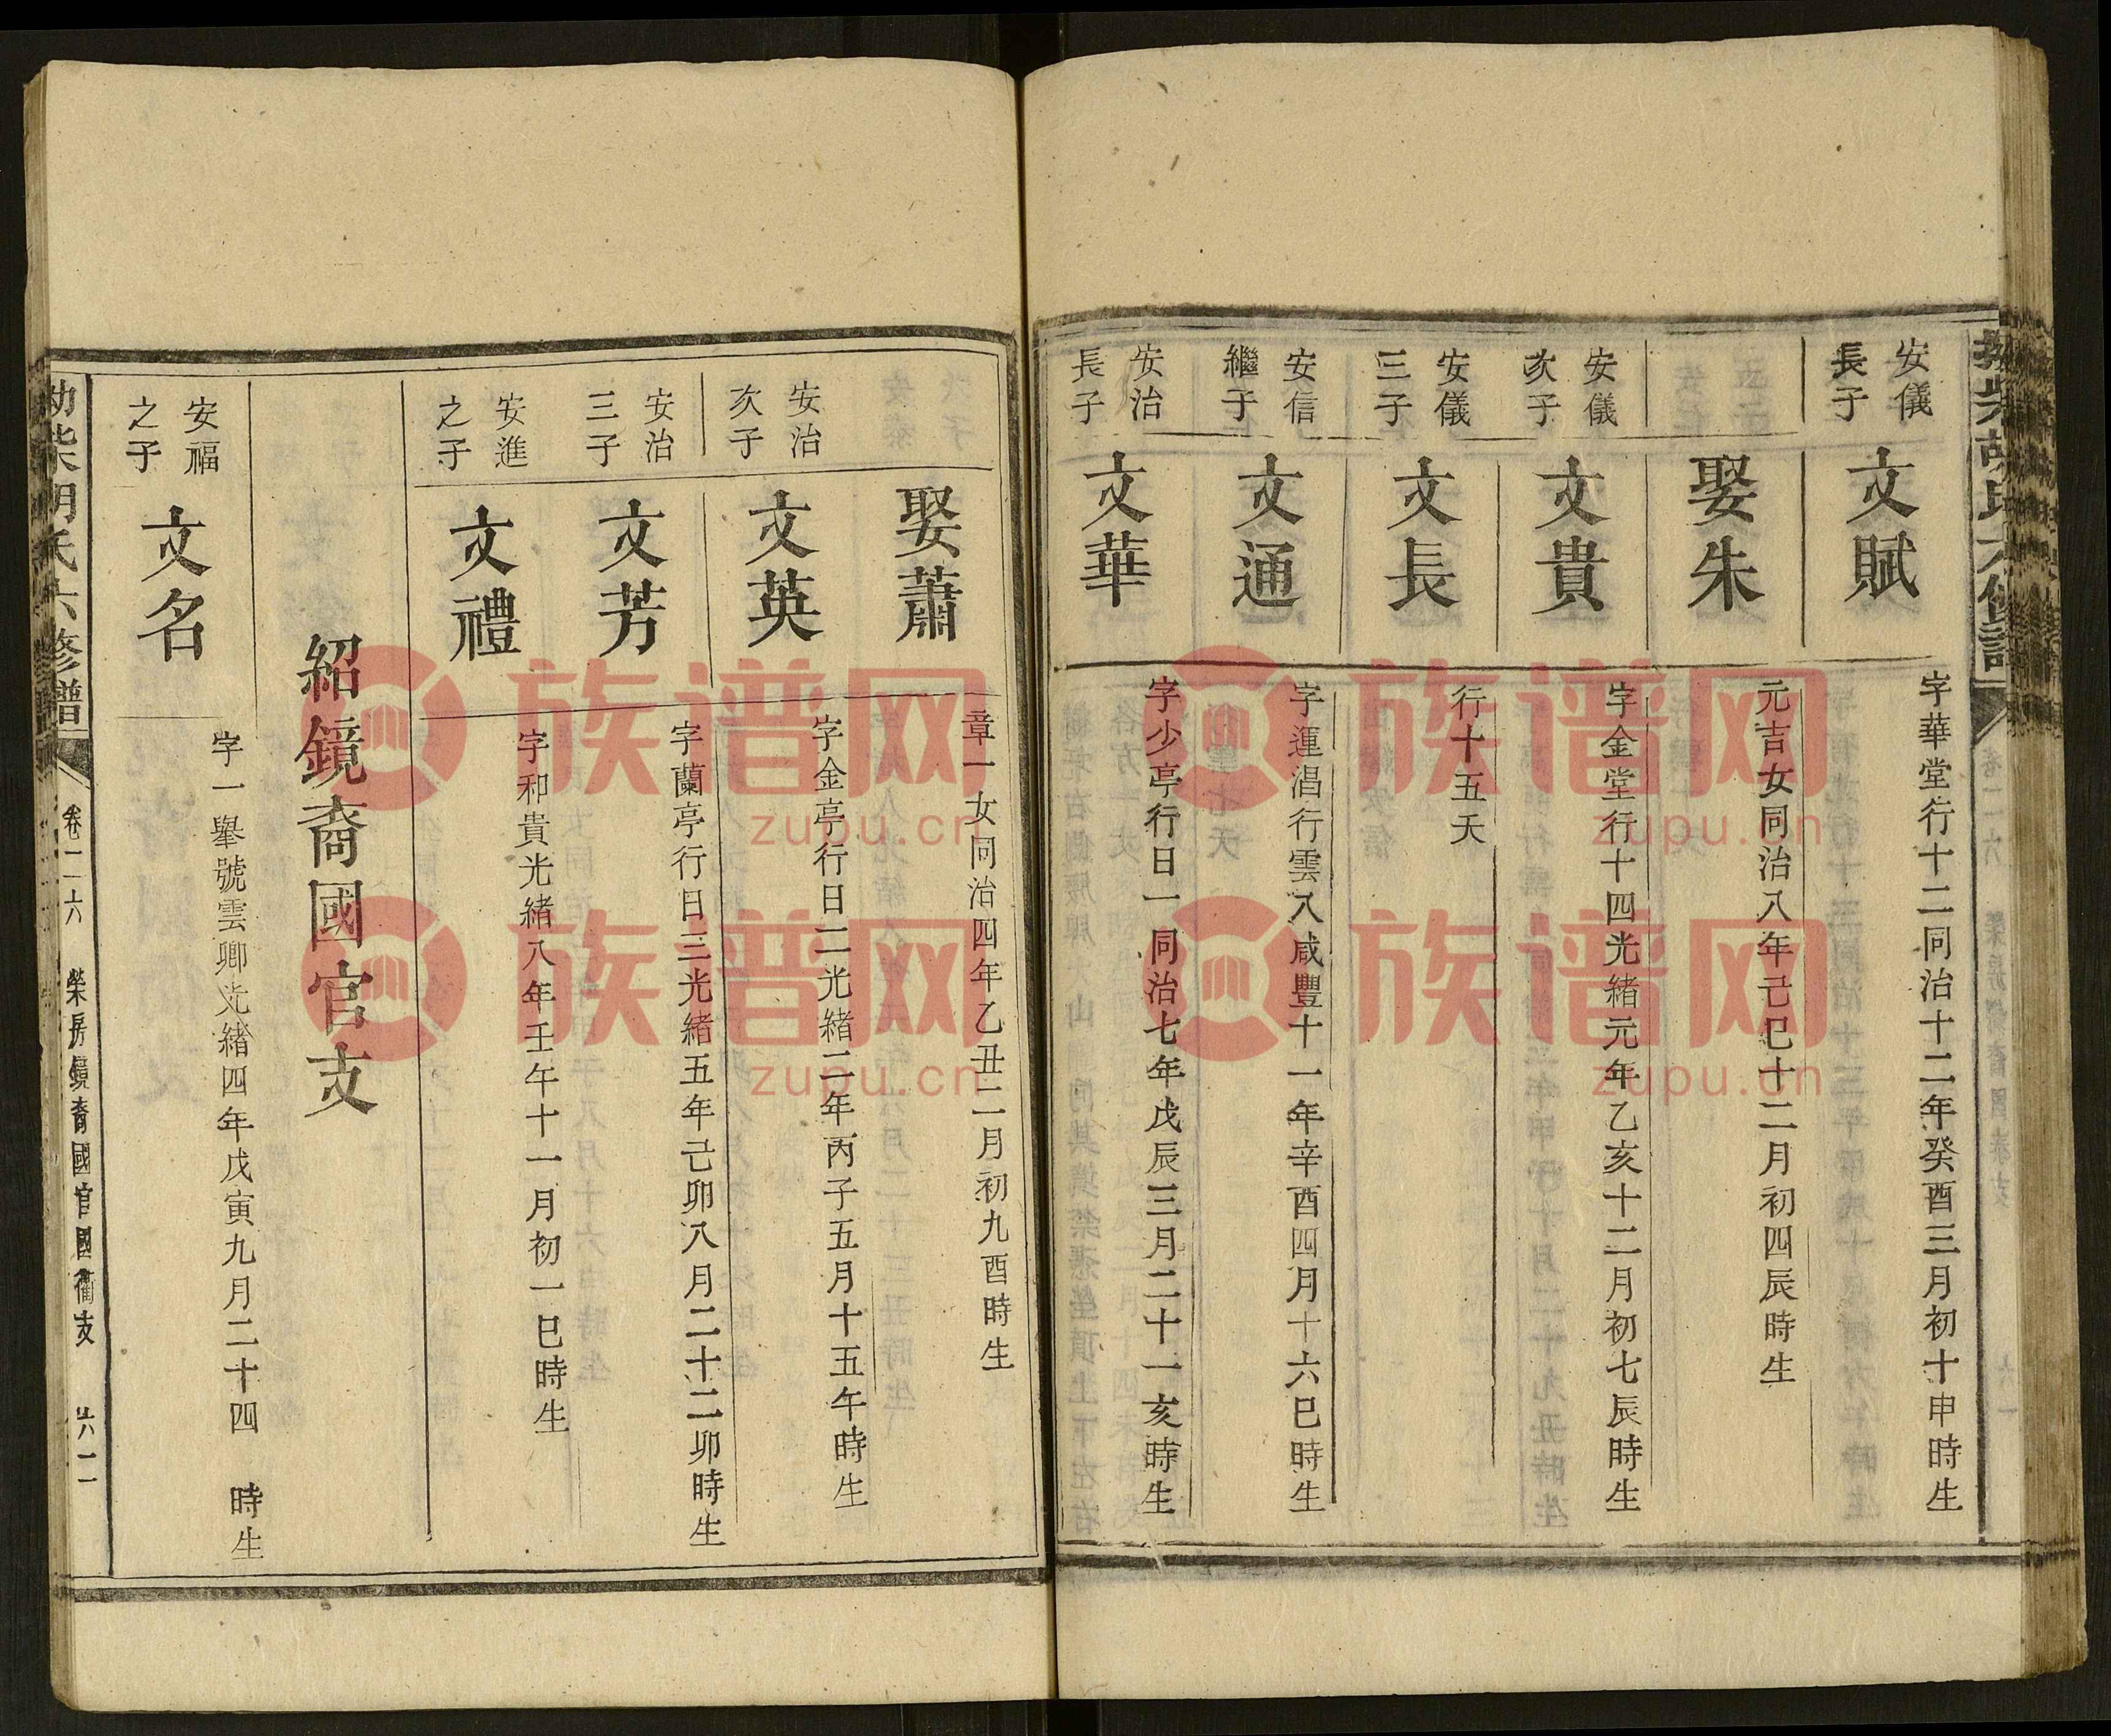 安儀
長子
文賦
字華堂行十二同治十二年癸酉三月初十申時生
娶朱
元吉女同治八年己巳十二月初四辰時生
安儀
次子
文貴
字金堂行十四光緒元年乙亥十二月初七辰時生
安儀
三子
文長
行十五夭
安信
繼子
文通
字運淐行雲八咸豐十一年辛酉四月十六巳時生
安治
長子
文華
字少亭行日一同治七年戊辰三月二十一亥時生
娶蕭
章一女同治四年乙丑二月初九酉時生
安治
次子
文英
字金亭行日二光緒二年丙子五月十五午時生
安治
三子
文芳
字蘭亭行日三光緒五年己卯八月二十二卯時生
安進
之子
文禮
字和貴光緒八年壬午十一月初一巳時生
紹鏡裔國官支
安福
之子
文名
字一舉號雲卿光緒四年戊寅九月二十四 時生
氏六修譜
卷二六
榮房鏡裔國官國衢支
六二
族谱网
zupu.cn
族谱网
zupu.cn
族谱网
zupu.cn
族谱网
zupu.cn